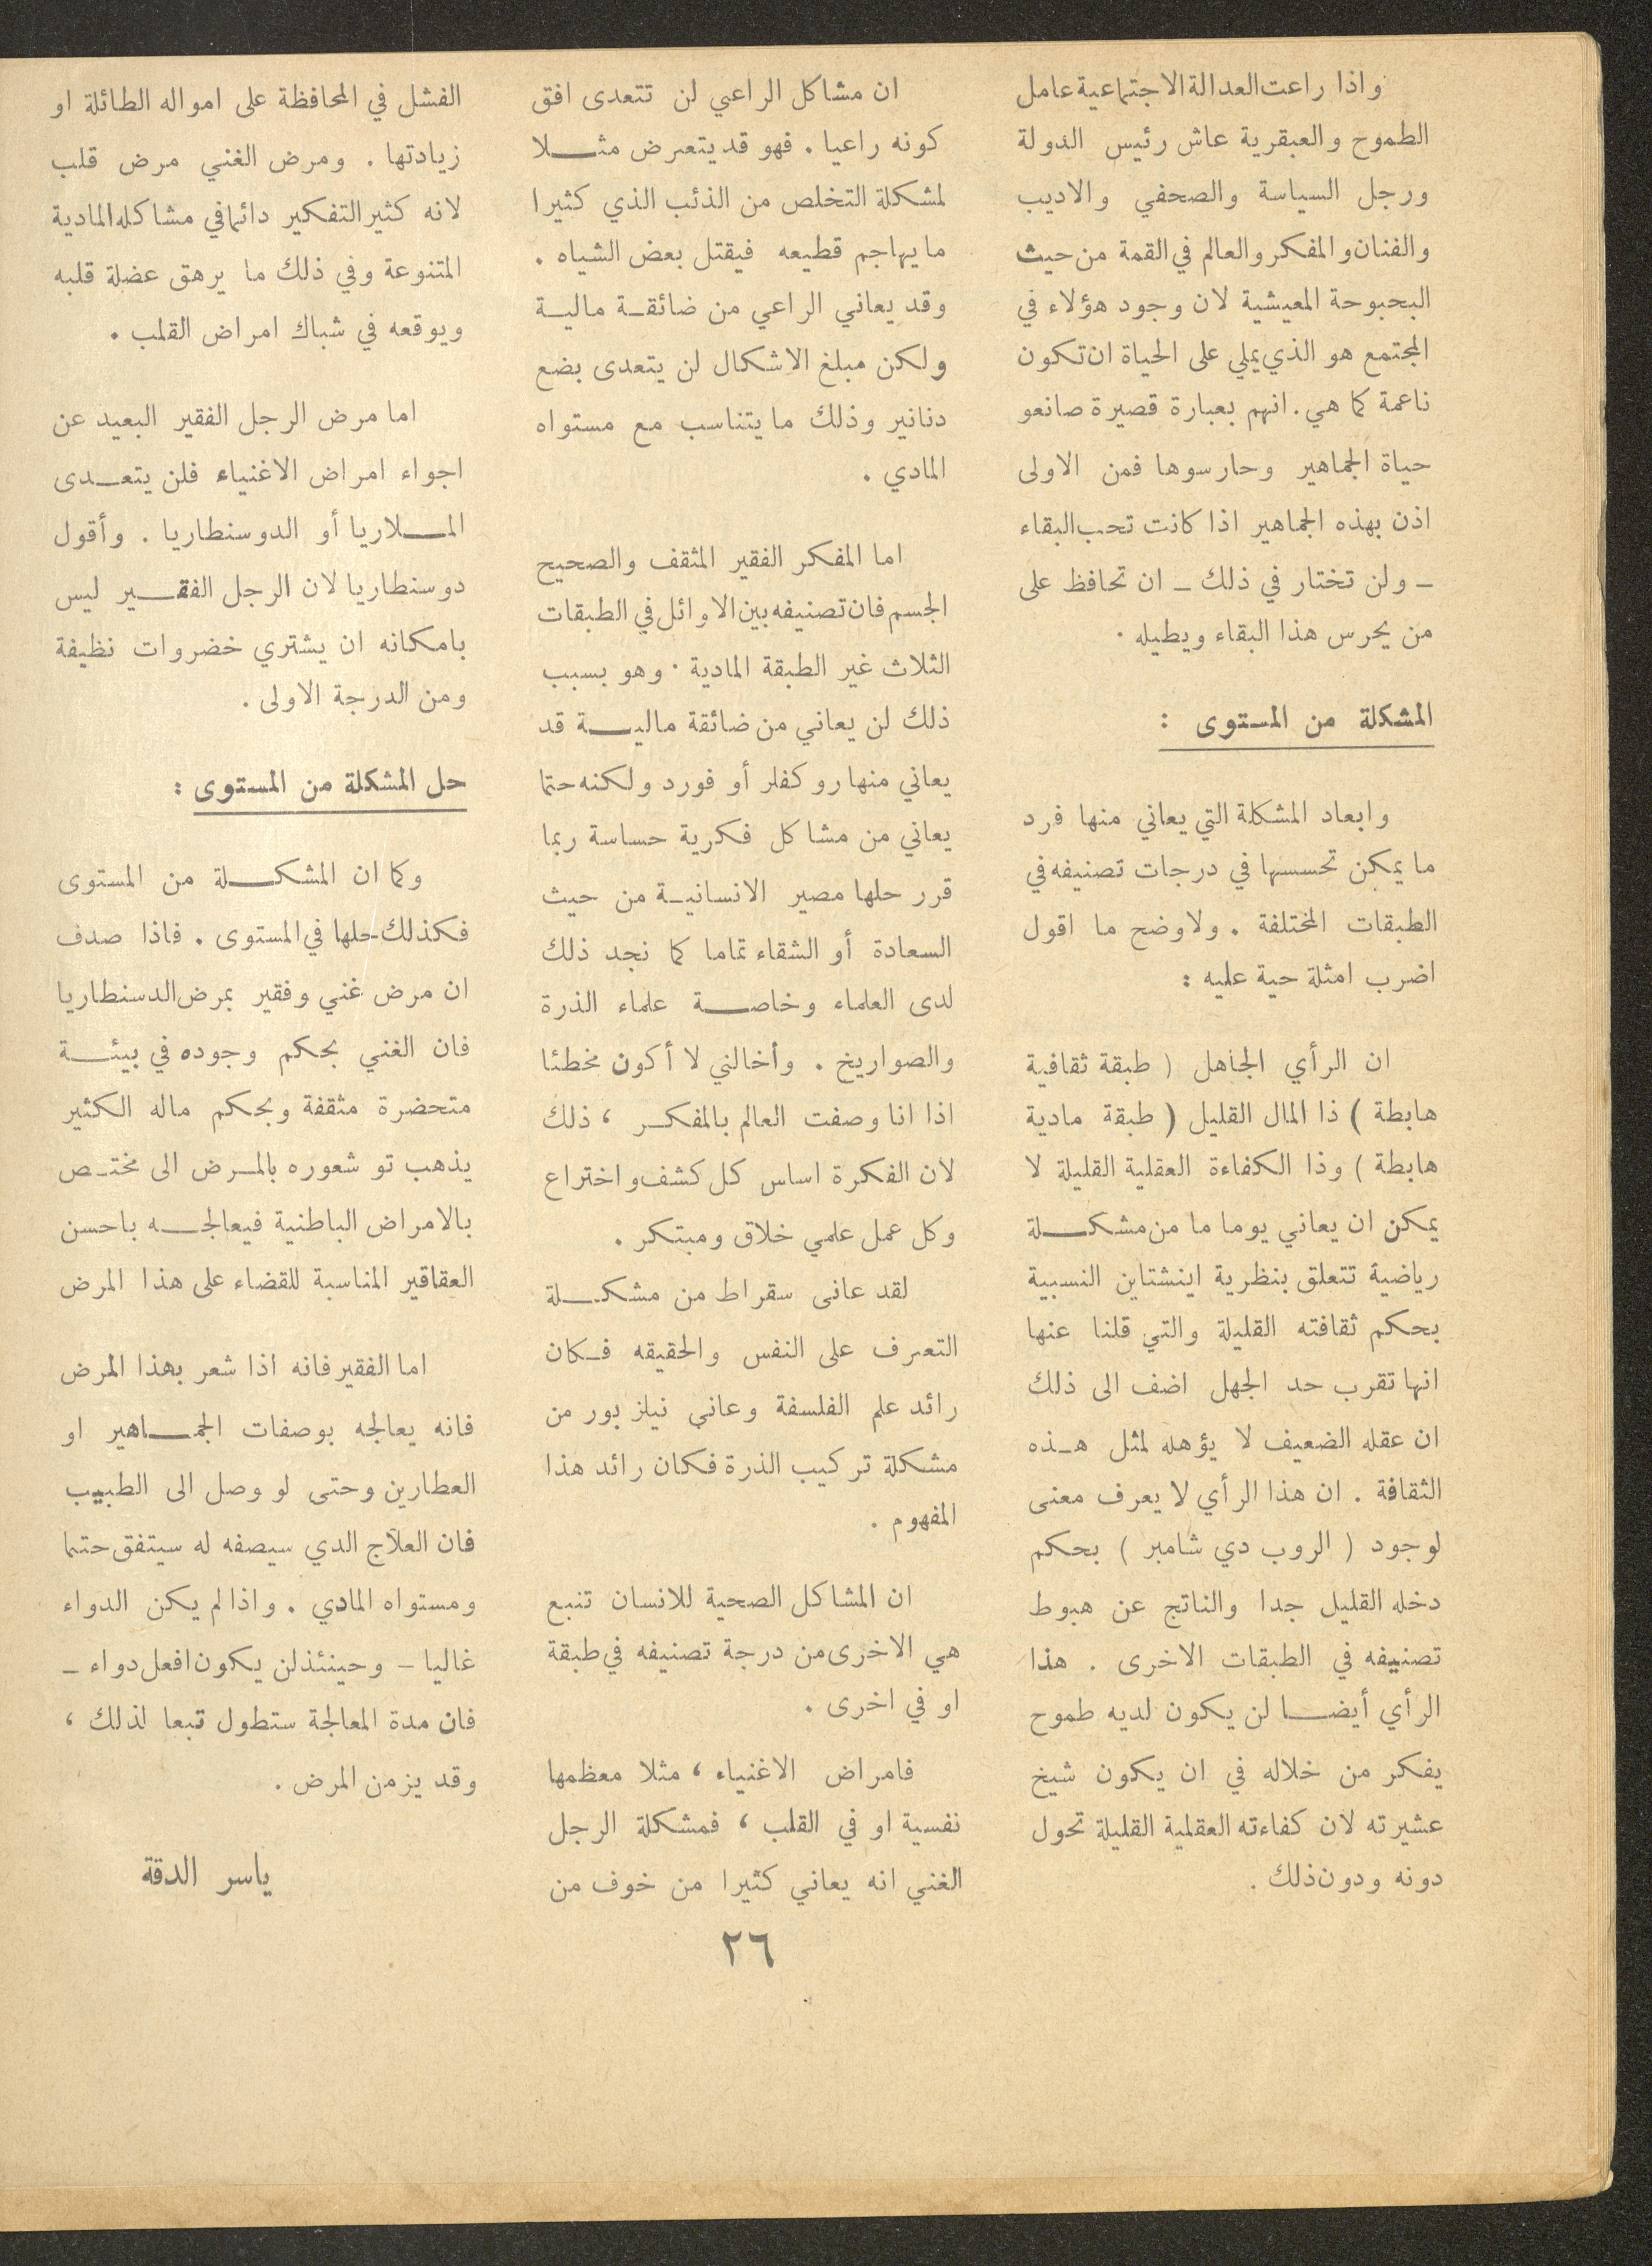 واذا راعت العدالة الاجتماعية عامل
الطموح والعبقرية عاش رئيس الدولة
ورجل السياسة والصحفي والاديب
والفنان والمفكر والعالم في القمة من حيث
البحبوحة المعيشية لان وجود هؤلاء في
المجتمع هو الذي يملي على الحياة ان تكون
ناعمة كما هي. انهم بعبارة قصيرة صانعو
حياة الجماهير وحارسوها فمن الاولى
اذن بهذه الجماهير اذا كانت تحب البقاء
- ولن تختار في ذلك - ان تحافظ على
من يحرس هذا البقاء ويطيله .
المشكلة من المستوى :
وابعاد المشكلة التي يعاني منها فرد
ما يمكن تحسسها في درجات تصنيفه في
الطبقات المختلفة . ولاوضح ما اقول
اضرب امثلة حية عليه :
ان الرأي الجاهل ( طبقة ثقافية
هابطة ) ذا المال القليل ( طبقة مادية
هابطة ) وذا الكفاءة العقلية القليلة لا
يمكن ان يعاني يوما ما من مشكلة
رياضية تتعلق بنظرية اينشتاين النسبية
بحكم ثقافته القليلة والتي قلنا عنها
انها تقرب حد الجهل اضف الى ذلك
ان عقله الضعيف لا يؤهله لمثل هذه
الثقافة . ان هذا الرأي لا يعرف معنى
لوجود ( الروب دي شامبر ) بحكم
دخله القليل جدا والناتج عن هبوط
تصنيفه في الطبقات الاخرى . هذا
الرأي أيضا لن يكون لديه طموح
يفكر من خلاله في ان يكون شيخ
عشيرته لان كفاءته العقلية القليلة تحول
دونه ودون ذلك .
ان مشاكل الراعي لن تتعدى افق
كونه راعيا . فهو قد يتعرض مثلا
لمشكلة التخلص من الذئب الذي كثيرا
ما يهاجم قطيعه فيقتل بعض الشياه .
وقد يعاني الراعي من ضائقة مالية
ولكن مبلغ الاشكال لن يتعدى بضع
دنانير وذلك ما يتناسب مع مستواه
المادي .
اما المفكر الفقير المثقف والصحيح
الجسم فان تصنيفه بين الاوائل في الطبقات
الثلاث غير الطبقة المادية . وهو بسبب
ذلك لن يعاني من ضائقة مالية قد
يعاني منها روكفلر أو فورد ولكنه حتما
يعاني من مشاكل فكرية حساسة ربما
قرر حلها مصير الانسانية من حيث
السعادة أو الشقاء تماما كما نجد ذلك
لدى العلماء وخاصة علماء الذرة
والصواريخ . وأخالني لا أكون مخطئا
اذا انا وصفت العالم بالمفكر ، ذلك
لان الفكرة اساس كل كشف واختراع
وكل عمل علمي خلاق ومبتكر .
لقد عانى سقراط من مشكلة
التعرف على النفس والحقيقه فكان
رائد علم الفلسفة وعاني نيلز بور من
مشكلة تركيب الذرة فكان رائد هذا
المفهوم .
ان المشاكل الصحية للانسان تنبع
هي الاخرى من درجة تصنيفه في طبقة
او في اخرى .
فامراض الاغنياء ، مثلا معظمها
نفسية او في القلب ، فمشكلة الرجل
الغني انه يعاني كثيرا من خوف من
الفشل في المحافظة على امواله الطائلة او
زيادتها . ومرض الغني مرض قلب
لانه كثير التفكير دائما في مشاكله المادية
المتنوعة وفي ذلك ما يرهق عضلة قلبه
ويوقعه في شباك امراض القلب .
اما مرض الرجل الفقير البعيد عن
اجواء امراض الاغنياء فلن يتعدى
الملاريا أو الدوسنطاريا . وأقول
دوسنطاريا لان الرجل الفقير ليس
بامكانه ان يشتري خضروات نظيفة
ومن الدرجة الاولى .
حل المشكلة من المستوى :
وكما ان المشكلة من المستوى
فكذلك حلها في المستوى . فاذا صدف
ان مرض غني وفقير بمرض الدسنطاريا
فان الغني بحكم وجوده في بيئة
متحضرة مثقفة وبحكم ماله الكثير
يذهب تو شعوره بالمرض الى مختص
بالامراض الباطنية فيعالجه باحسن
العقاقير المناسبة للقضاء على هذا المرض
اما الفقير فانه اذا شعر بهذا المرض
فانه يعالجه بوصفات الجماهير او
العطارين وحتى لو وصل الى الطبيب
فان العلاج الدي سيصفه له سيتفق حتما
ومستواه المادي . واذا لم يكن الدواء
غاليا - وحينئذ لن يكون افعل دواء -
فان مدة المعالجة ستطول تبعا لذلك ،
وقد يزمن المرض .
ياسر الدقة
٢٦